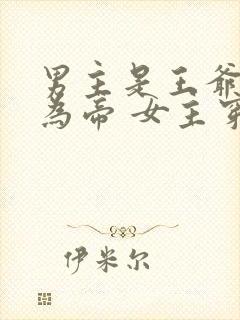 男主是王爺
為帝 女主穿
伊米尔